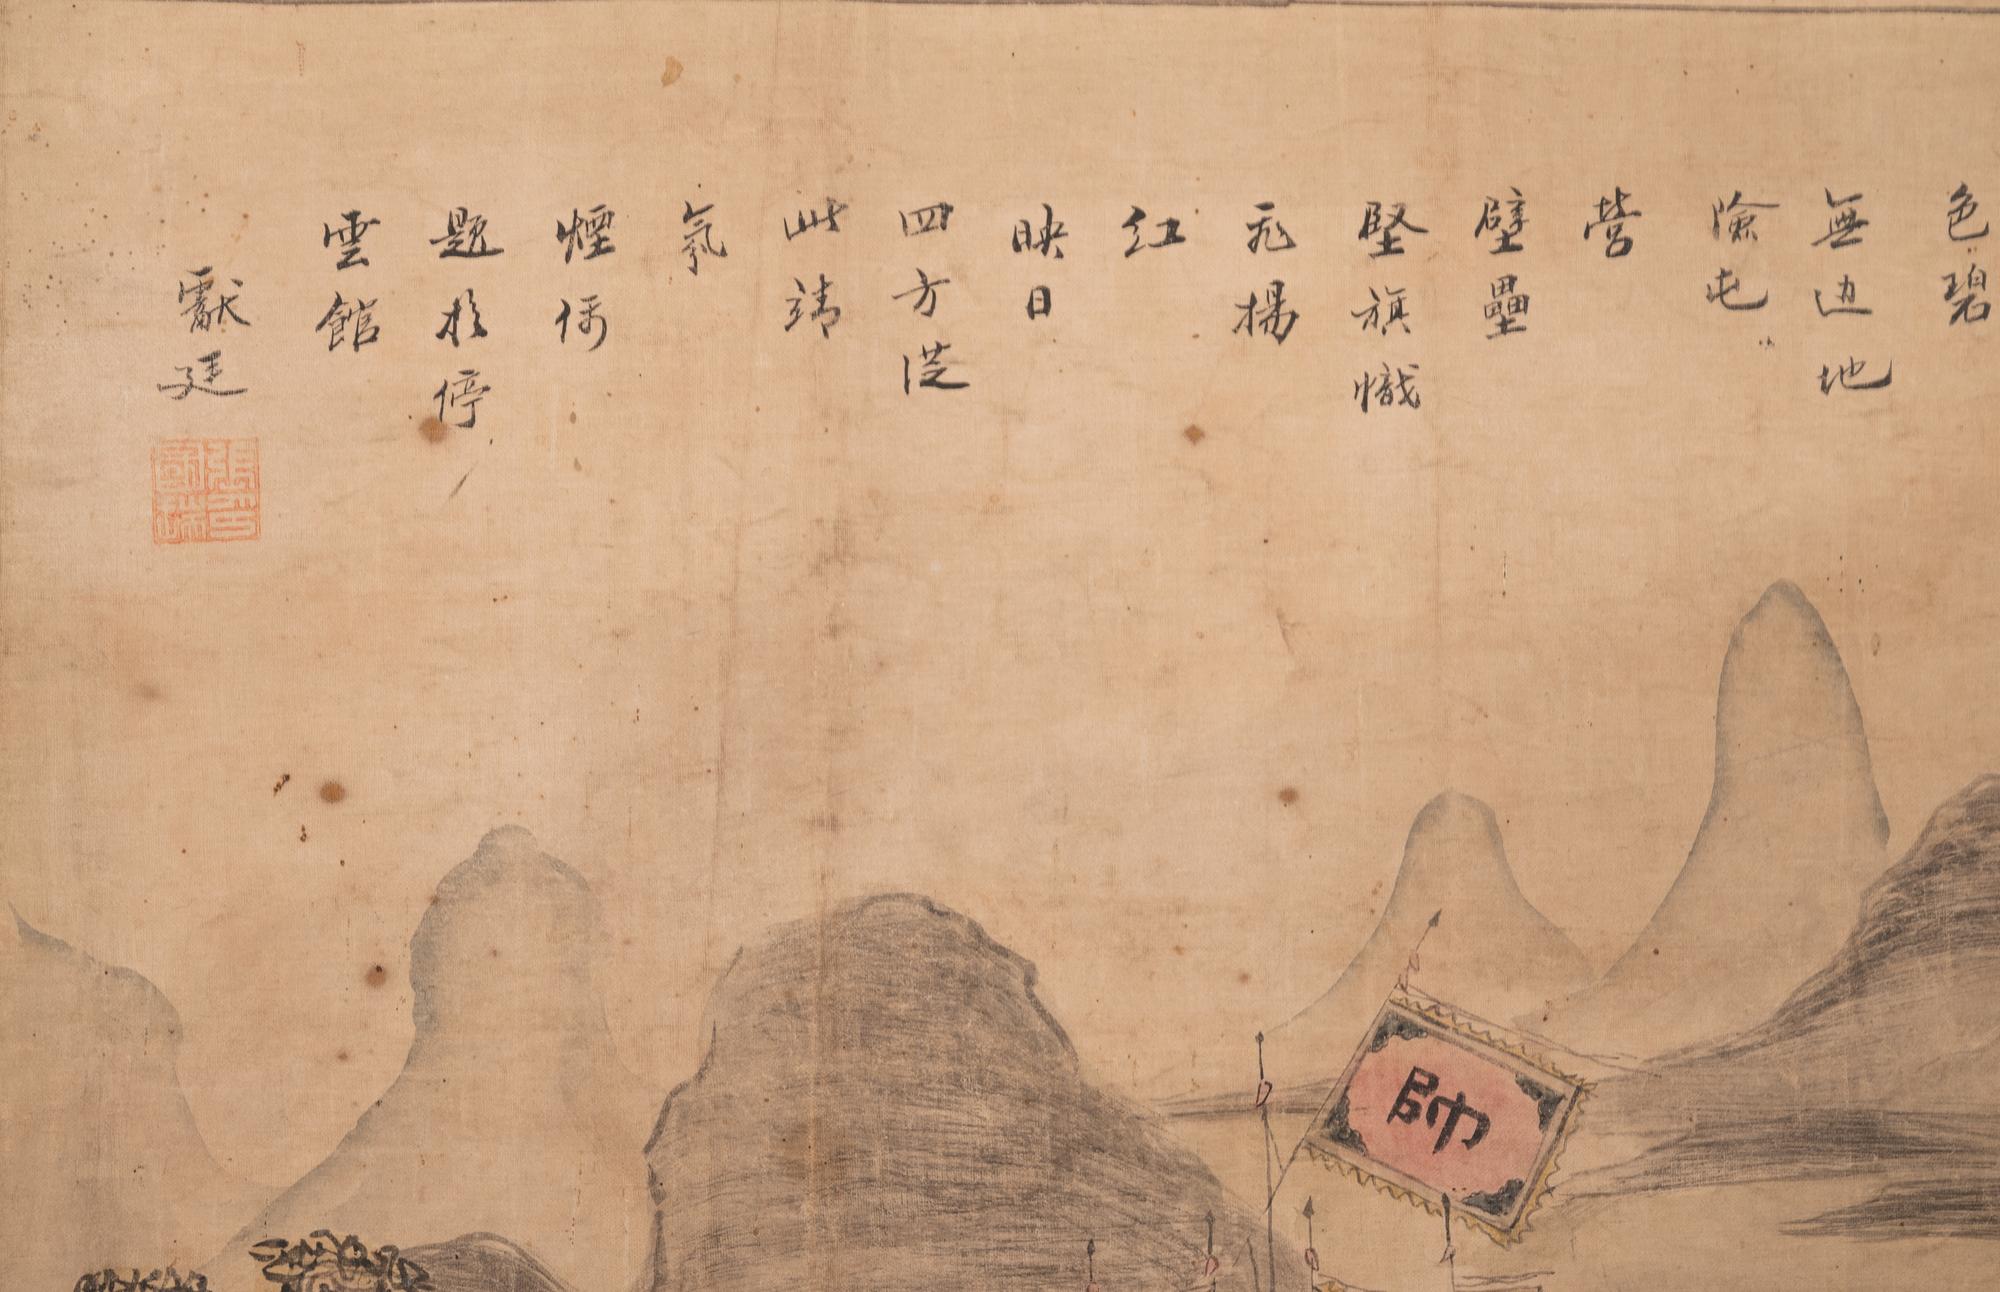 色碧
無边地
險屯
營
壁壘
堅旗幟
飛揚
紅
映日
四方從
此靖
氛
煙
題於停
雲館
獻廷
帥